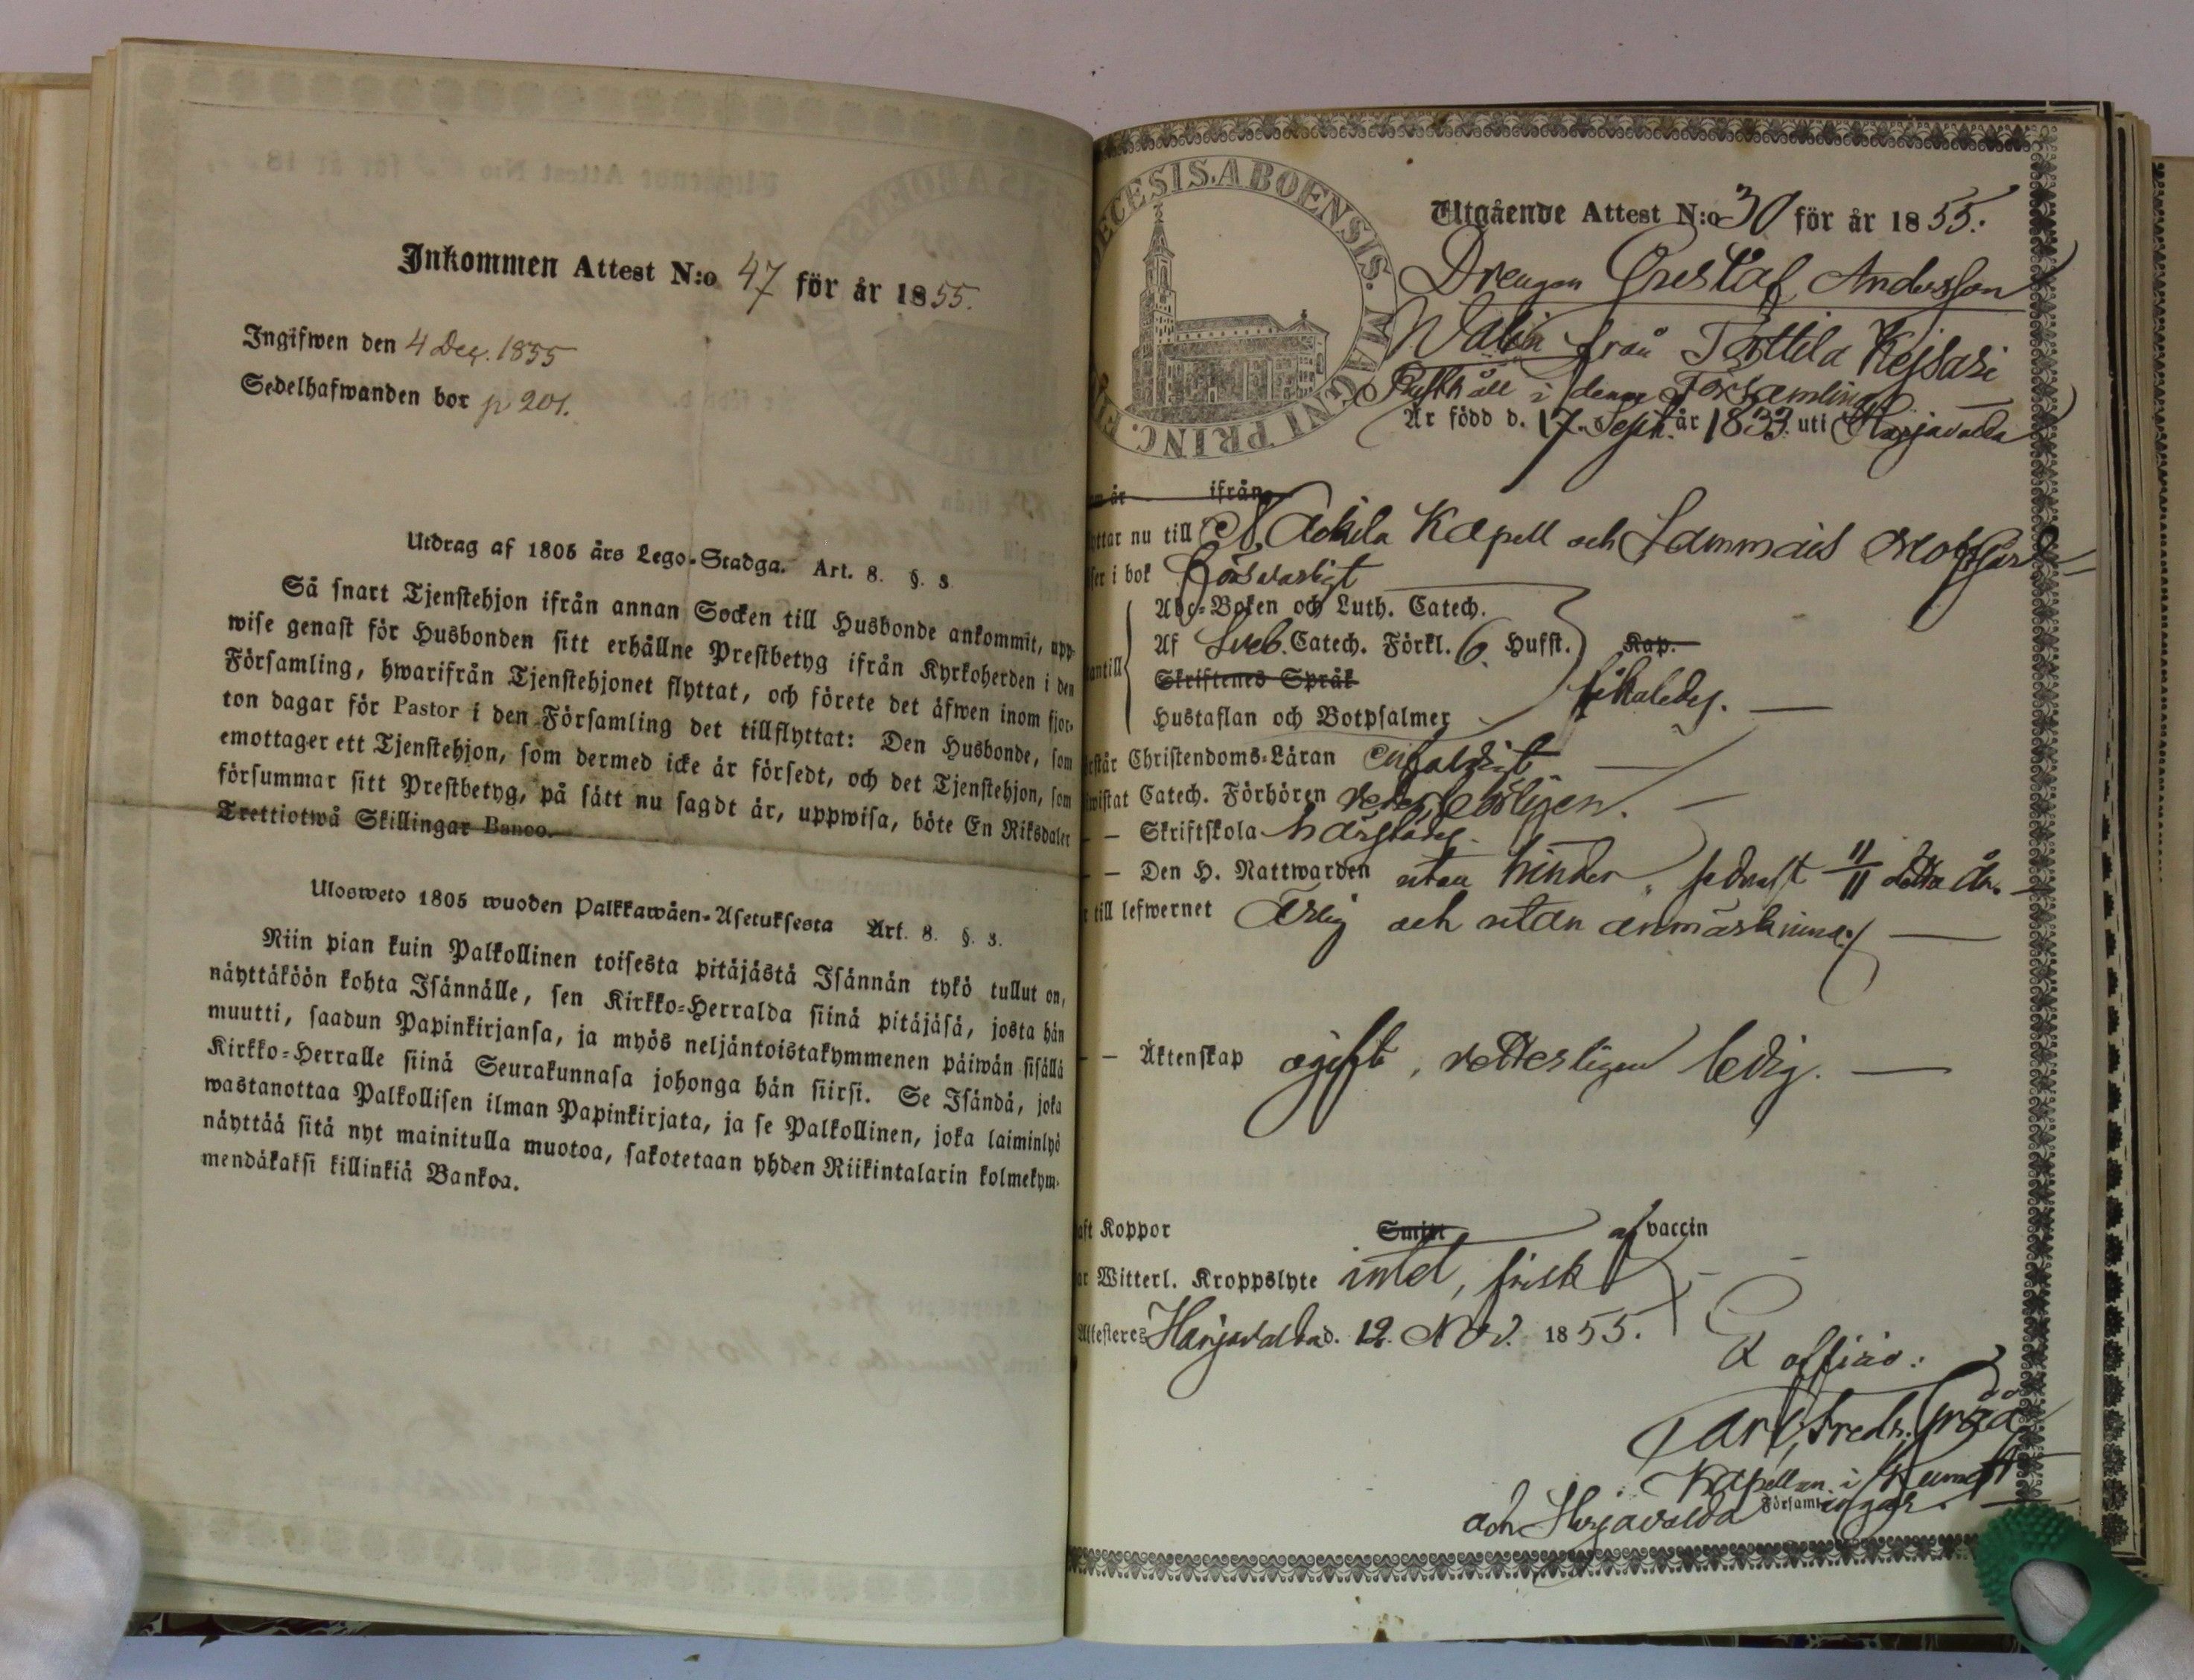 Inkommen Attest N:o 47 för år 1855.
Ingifwen den 4 Dec. 1855
Sedelhafwanden bor p 201.
Utdrag af 1805 års Lego-Stadga. Art. 8. §. 3
Så snart Tjenstehjon ifrån annan Socken till Husbonde ankommit, upp-
wise genast för Husbonden sitt erhållne Prestbetyg ifrån Kyrkoherden i den
Församling, hwarifrån Tjenstehjonet flyttat, och förete det äfwen inom fjor-
ton dagar för Pastor i den Församling det tillflyttat: Den Husbonde, som
emottager ett Tjenstehjon, som dermed icke är försedt, och det Tjenstehjon, som
försummar sitt Prestbetyg, på sätt nu sagdt är, uppwisa, böte En Riksdaler
Trettiotwå Skillingar Banco.
Ulosweto 1805 wuoden Palkkawäen-Asetuksesta Art. 8. §. 3.
Niin pian kuin Palkollinen toisesta pitäjästä Isännän tykö tullut on,
näyttäköön kohta Isännälle, sen Kirkko-Herralda siinä pitäjäsä, josta hän
muutti, saadun Papinkirjansa, ja myös neljäntoistakymmenen päiwän sisällä
Kirkko-Herralle siinä Seurakunnasa johonga hän siirsi. Se Isändä, joka
wastanottaa Palkollisen ilman Papinkirjata, ja se Palkollinen, joka laiminlyö
näyttää sitä nyt mainitulla muotoa, sakotetaan yhden Riikintalarin kolmekym-
mendäkaksi killinkiä Bankoa.
ECESIS. ABOENSIS. MAGNI PRINC. FI
Utgående Attest N:o 30 för år 1855.
Drengen Gustaf Andersson
Walin från Torttila Kejsari
Rusthåll i denna Församling
Är född d. 17. Sept. år 1833. uti Harjavalda
år ifrån
ttar nu till Nackila Kapell och Lammais
ser i bok försvarligt
Abc-Boken och Luth. Catech.
Af Sveb. Catech. Förkl. 6. Hufst. Kap.
antill
Skriftenes Språk
likaledes.
Hustaflan och Botpsalmer
rstår Christendoms-Läran enfaldigt
wistat Catech. Förhören vederbörligen.
— Skriftskola härstädes.
— Den H. Nattwarden utan hinder, sednast 11/11 detta år.
till lefwernet Ärlig och utan anmärkning
— Äktenskap ogift, vetterligen ledig.
aft Koppor Smitt af vaccin
ar Witterl. Kroppslyte intet, frisk
Attesteres Harjavalda d. 12. Nov. 1855.
Ex officio:
Carl Fredr. Gråå
Kapellan i Kumo
och Harjavalda Församlingar.